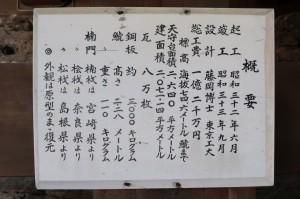 概要
起工 昭和三十二年六月
竣工 昭和三十三年九月
設計 藤岡博士 東京工大
総工費 一億二千万円
標高 海抜七四六メートル 鯱まで
天守台面積 二六四〇 平方メートル
建面積 二〇七・四 平方メートル
瓦 八万枚
銅板 約 三〇〇〇 キログラム
鯱 高さ 二・二八 メートル
重さ 一一〇 キログラム
楠門 楠材は 宮崎県より
〃 桧材は 奈良県より
〃 松材は 島根県より
◎ 外観は原型のまゝ復元